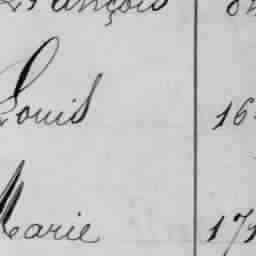 François
Louis 16
Marie 171